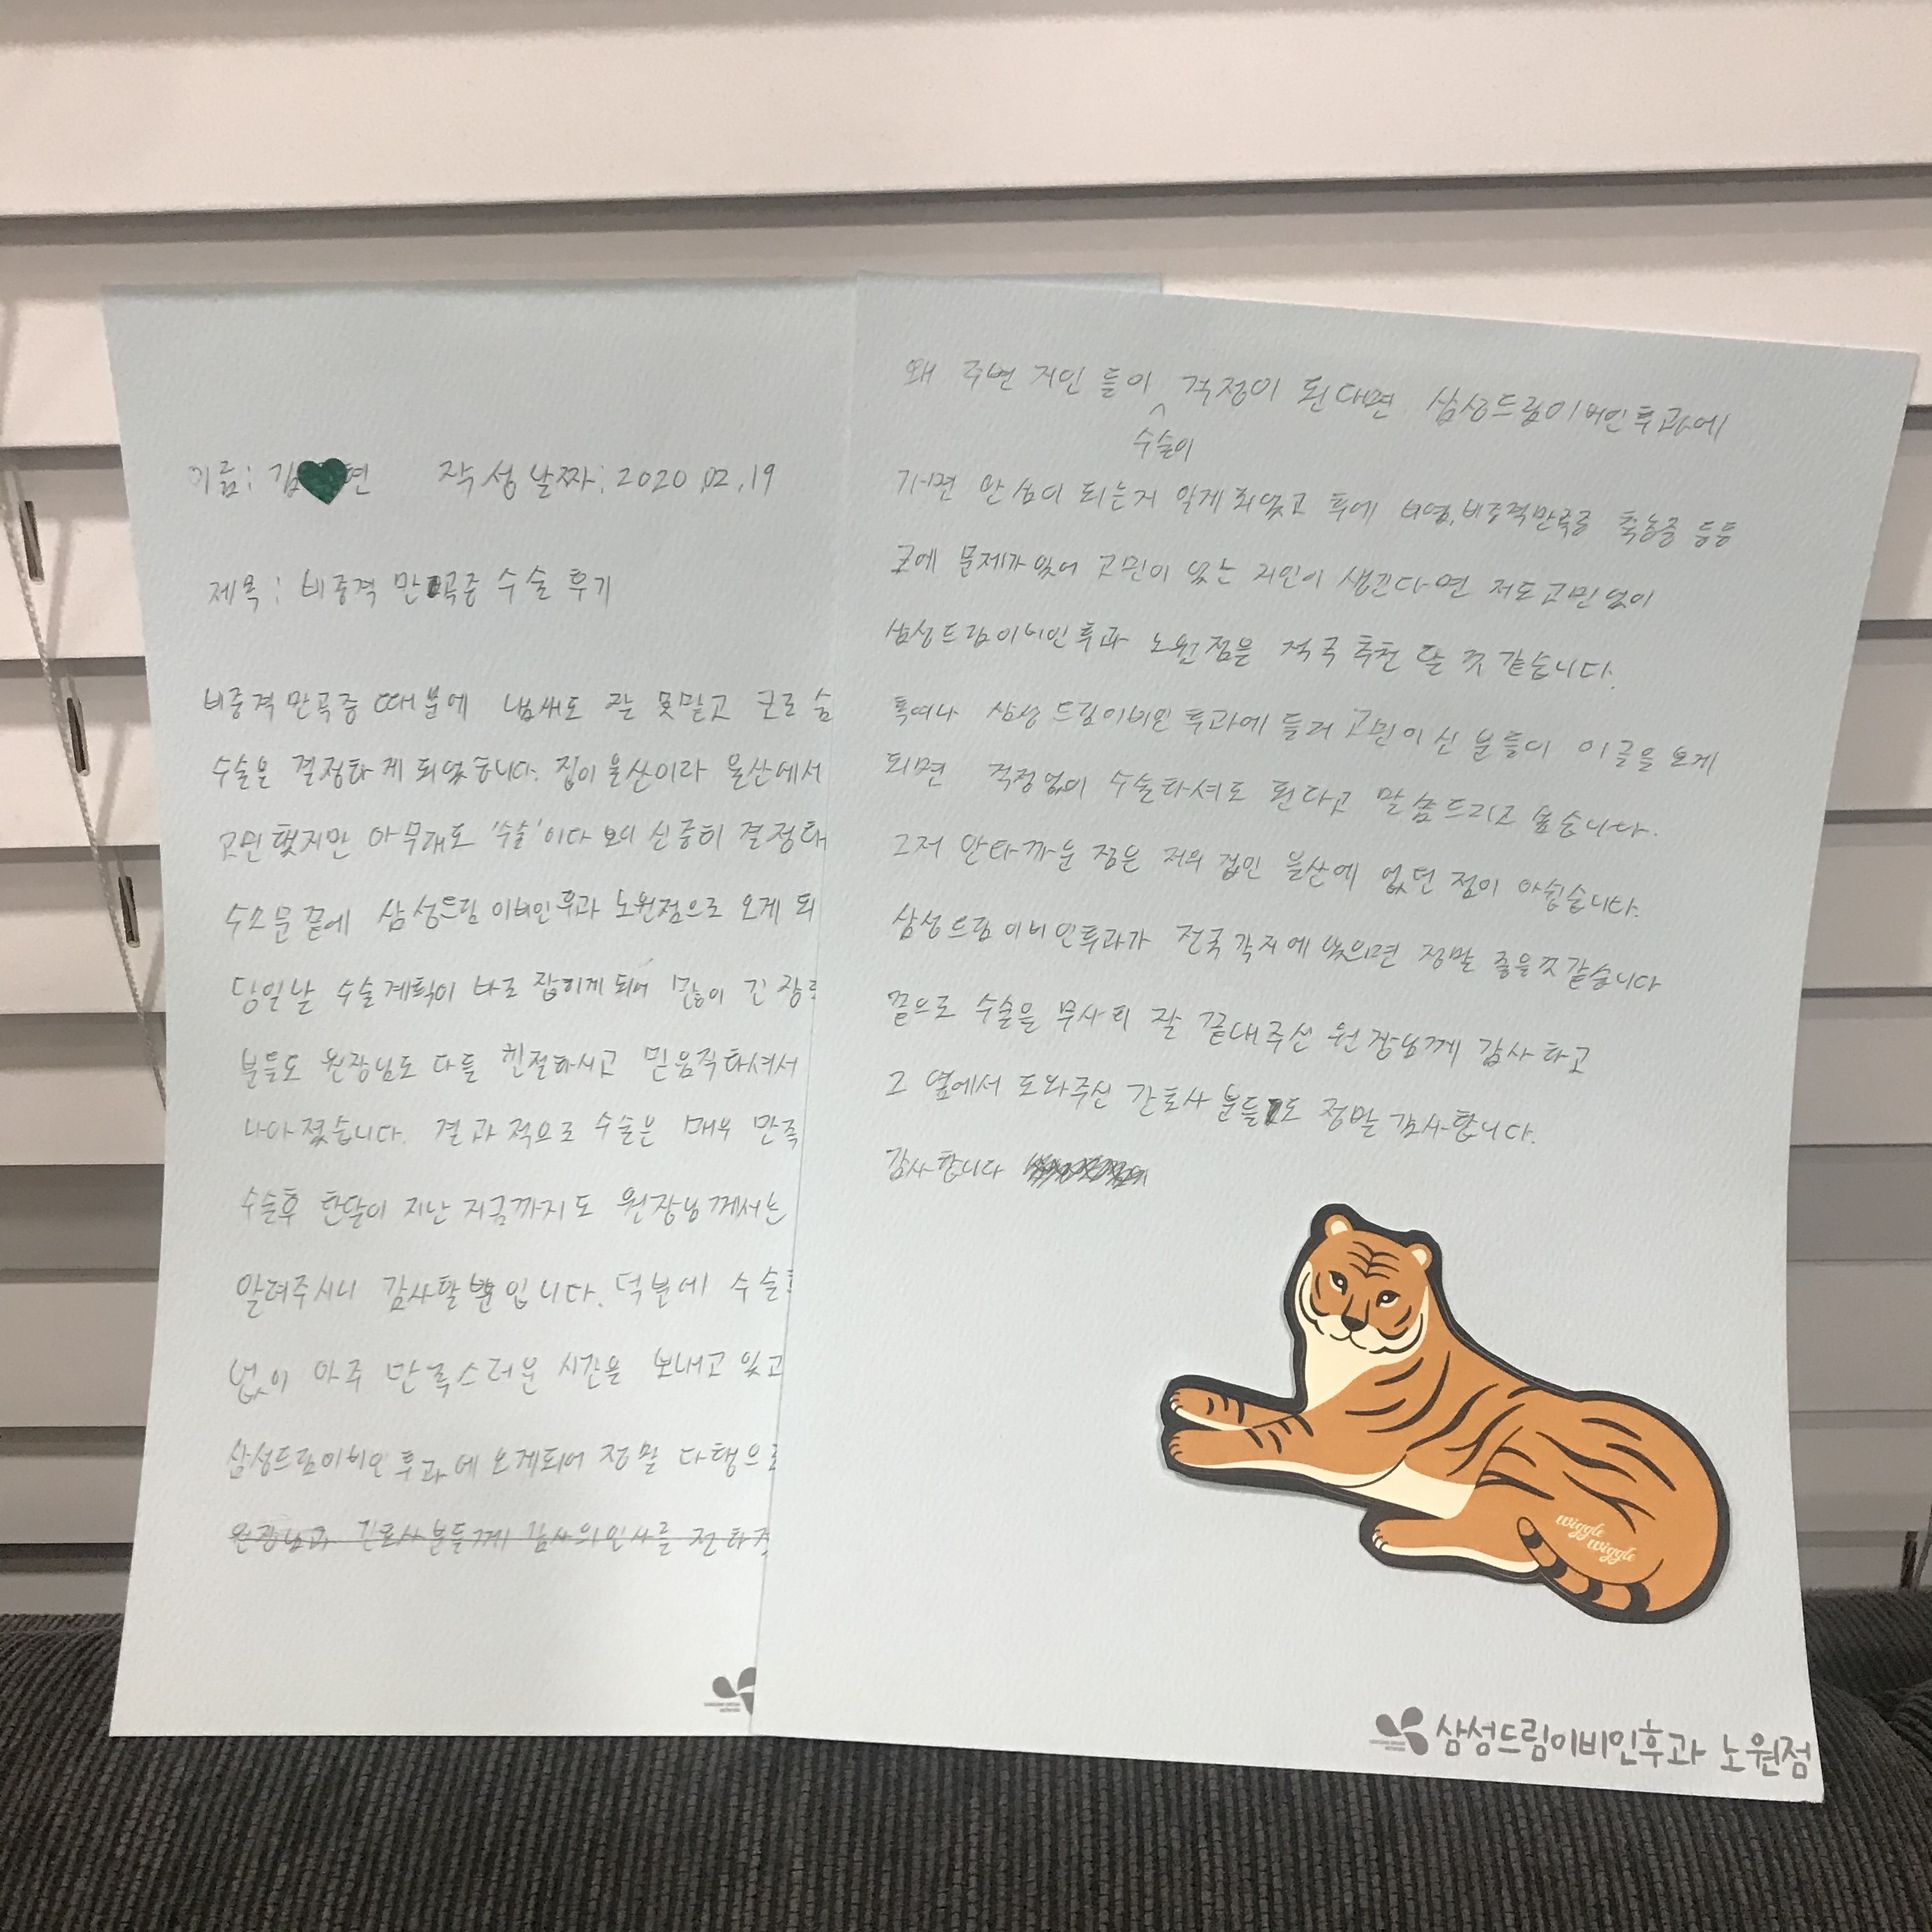 이름: 김 연 작성날짜: 2020.02.19
제목: 비중격 만곡증 수술 후기
비중격만곡증 때문에 냄새도 잘 못맡고 코로 숨
수술을 결정하게 되었습니다. 집이 울산이라 울산에서
고민했지만 아무래도 '수술'이다 보니 신중히 결정하
수소문 끝에 삼성드림이비인후과 노원점으로 오게 되
당일날 수술계획이 바로 잡히게 되어 많이 긴장
분들도 원장님도 다들 친절하시고 믿음직하셔서
나아졌습니다. 결과적으로 수술은 매우 만족
수술후 한달이 지난 지금까지도 원장님께서는
알려주시니 감사할뿐입니다. 덕분에 수술
없이 아주 만족스러운 시간을 보내고 있고
삼성드림이비인후과에 오게되어 정말 다행으로
원장님과 간호사분들께 감사의인사를 전하고
왜 주변 지인들이 걱정이 된다면 삼성드림이비인후과에
수술이
가면 안심이 되는지 알게되었고 후에 비염,비중격만곡증 축농증 등등
코에 문제가 있어 고민이 있는 지인이 생긴다면 저도 고민없이
삼성드림이비인후과 노원점을 적극 추천 할 것 같습니다.
혹여나 삼성드림이비인후과에 들러 고민이신 분들이 이글을 보게
되면 걱정없이 수술하셔도 된다고 말씀드리고 싶습니다.
그저 안타까운 점은 저의 집인 울산에 없던 점이 아쉽습니다.
삼성드림이비인후과가 전국 각지에 있으면 정말 좋을것같습니다
끝으로 수술을 무사히 잘 끝내주신 원장님께 감사하고
그 옆에서 도와주신 간호사분들도 정말 감사합니다.
감사합니다
wiggle
wiggle
삼성드림이비인후과 노원점